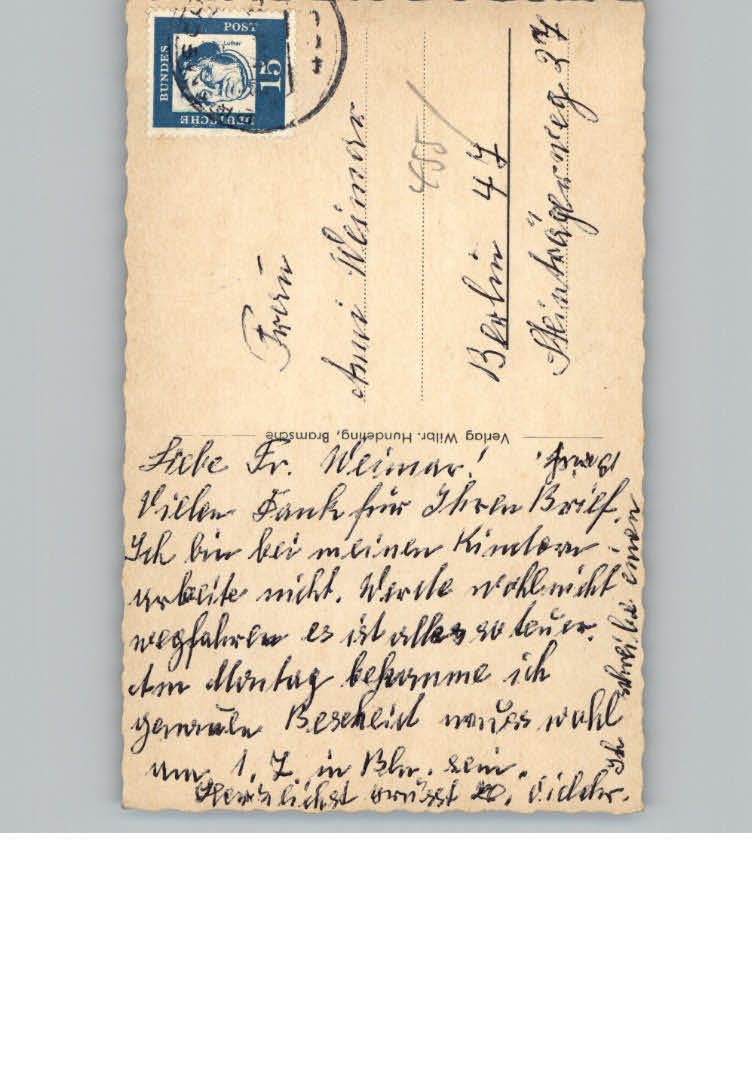 DEUTSCHE
BUNDES
POST
15
Luther
Frau
Anni Weimar
455
Berlin 47
Steinträgerweg 27
Verlag Wilbr. Hundeling, Bramsche
Liebe Fr. Weimar!
Vielen Dank für Ihren Brief.
Ich bin bei meinen Kindern
arbeite nicht. Werde wohl nicht
wegfahren es ist alles so teuer.
Am Montag bekomme ich
genauen Bescheid muss wohl
am 1. 7. in Bln. sein.
Herzlichst grüsst
Ich schreibe einen